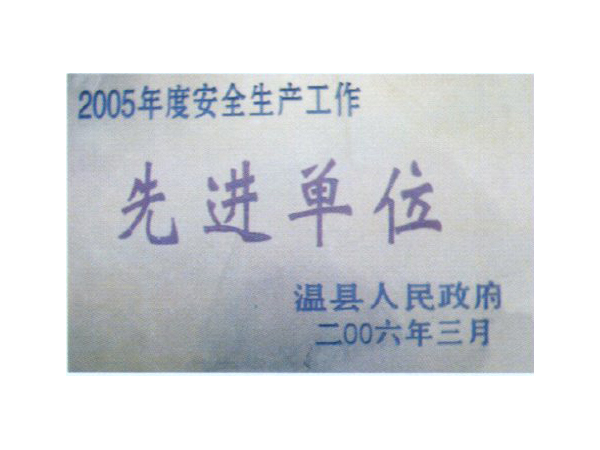 2005年度安全生产工作
先进单位
温县人民政府
二00六年三月